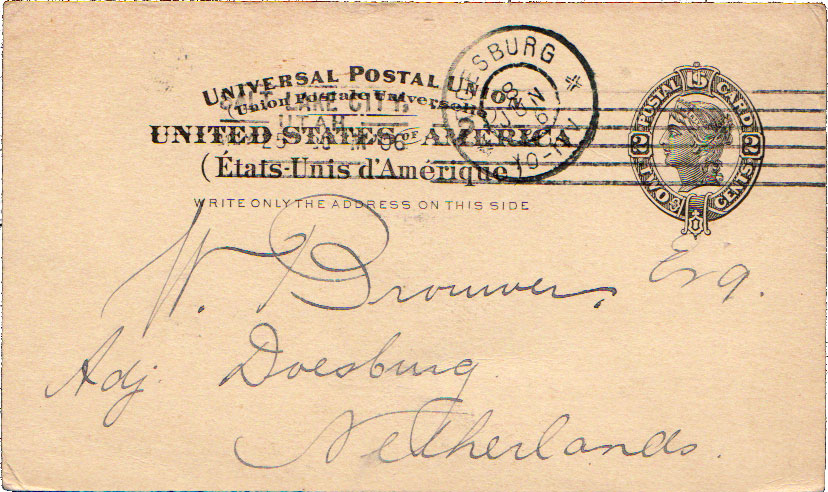 UNIVERSAL POSTAL UNION
(Union Postale Universelle)
SALT LAKE CITY,
UTAH
UNITED STATES OF AMERICA
(États-Unis d'Amérique)
WRITE ONLY THE ADDRESS ON THIS SIDE
ESBURG *
8
JUN
POSTAL CARD
U.S.
2 2
TWO CENTS
W. Brouwer, Esq.
Adj. Doesburg
Netherlands.